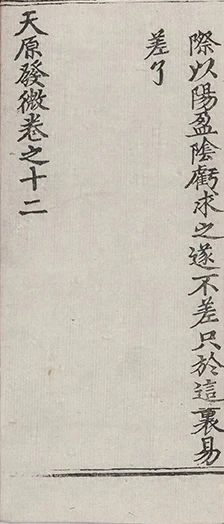 際以陽盈陰虧求之遂不差只於這裏易
差了
天原發微卷之十二